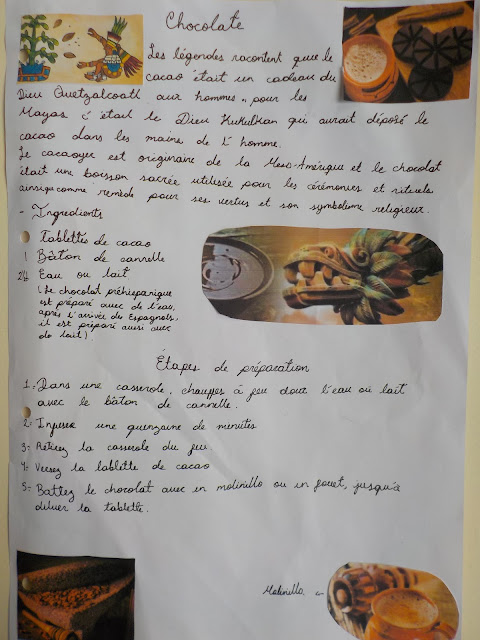 Chocolate
Les légendes racontent que le
cacao était un cadeau du
Dieu Quetzalcoatl aux hommes, pour les
Mayas c'était le Dieu Kukulkan qui aurait déposé le
cacao dans les mains de l'homme.
Le cacaoyer est originaire de la Meso-Amérique et le chocolat
était une boisson sacrée utilisée pour les cérémonies et rituels
ainsi que comme remède pour ses vertus et son symbolisme religieux.
- Ingredients
Tablettes de cacao
1 Bâton de cannelle
2 l Eau ou lait
(Le chocolat préhispanique
est préparé avec de l'eau,
après l'arrivée des Espagnols,
il est préparé aussi avec
du lait).
Étapes de préparation
1- Dans une casserole, chauffez à feu doux l'eau ou lait
avec le bâton de cannelle.
2- Infuser une quinzaine de minutes
3- Retirez la casserole du feu.
4- Versez la tablette de cacao
5- Battez le chocolat avec un molinillo ou un fouet, jusqu'à
diluer la tablette.
Molinillo